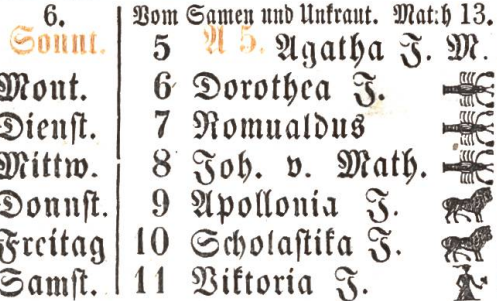 6. Vom Samen und Unkraut. Math 13.
Sonnt. 5 A 5. Agatha J. M.
Mont. 6 Dorothea J.
Dienst. 7 Romualdus
Mittw. 8 Joh. v. Math.
Donnst. 9 Apollonia J.
Freitag 10 Scholastika J.
Samst. 11 Viktoria J.